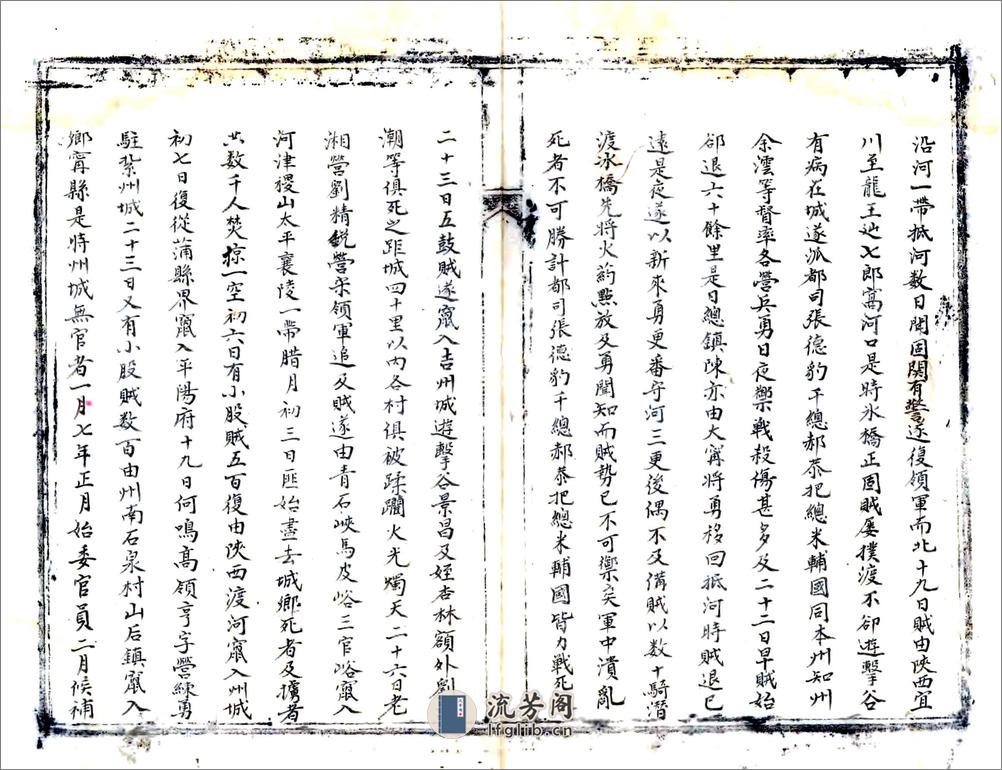 沿河一帶抵河数日聞固関有警遂復領軍而北十九日賊由陝西宜
川至龍王辿七郎窩河口是時氷橋正固賊屡撲渡不卻遊擊谷
有病在城遂派都司張德豹千總郝恭把總米輔國同本州知州
余澐等督率各營兵勇日夜禦戰殺傷甚多及二十二日早賊始
卻退六十餘里是日總鎮陳亦由大甯將勇移回抵河時賊退已
遠是夜遂以新來勇更番守河三更後偶不及備賊以数十騎潛
渡氷橋先將火葯點放及勇聞知而賊勢已不可禦矣軍中潰亂
死者不可勝計都司張德豹千總郝恭把總米輔國皆力戰死
二十三日五鼓賊遂竄入吉州城遊擊谷景昌及姪杏林額外劉
潮等俱死之距城四十里以內各村俱被蹂躪火光燭天二十六日老
湘營劉精銳營宋領軍追及賊遂由青石峽馬皮峪三官峪竄入
河津稷山太平襄陵一帶腊月初三日匪始盡去城鄉死者及擄者
共数千人焚掠一空初六日有小股賊五百復由陝西渡河竄入州城
初七日復從蒲縣界竄入平陽府十九日何鳴高領亨字營練勇
駐紮州城二十三日又有小股賊数百由州南石泉村山后鎮竄入
鄉甯縣是時州城無官者一月七年正月始委官員二月候補
流芳阁
lfglib.cn